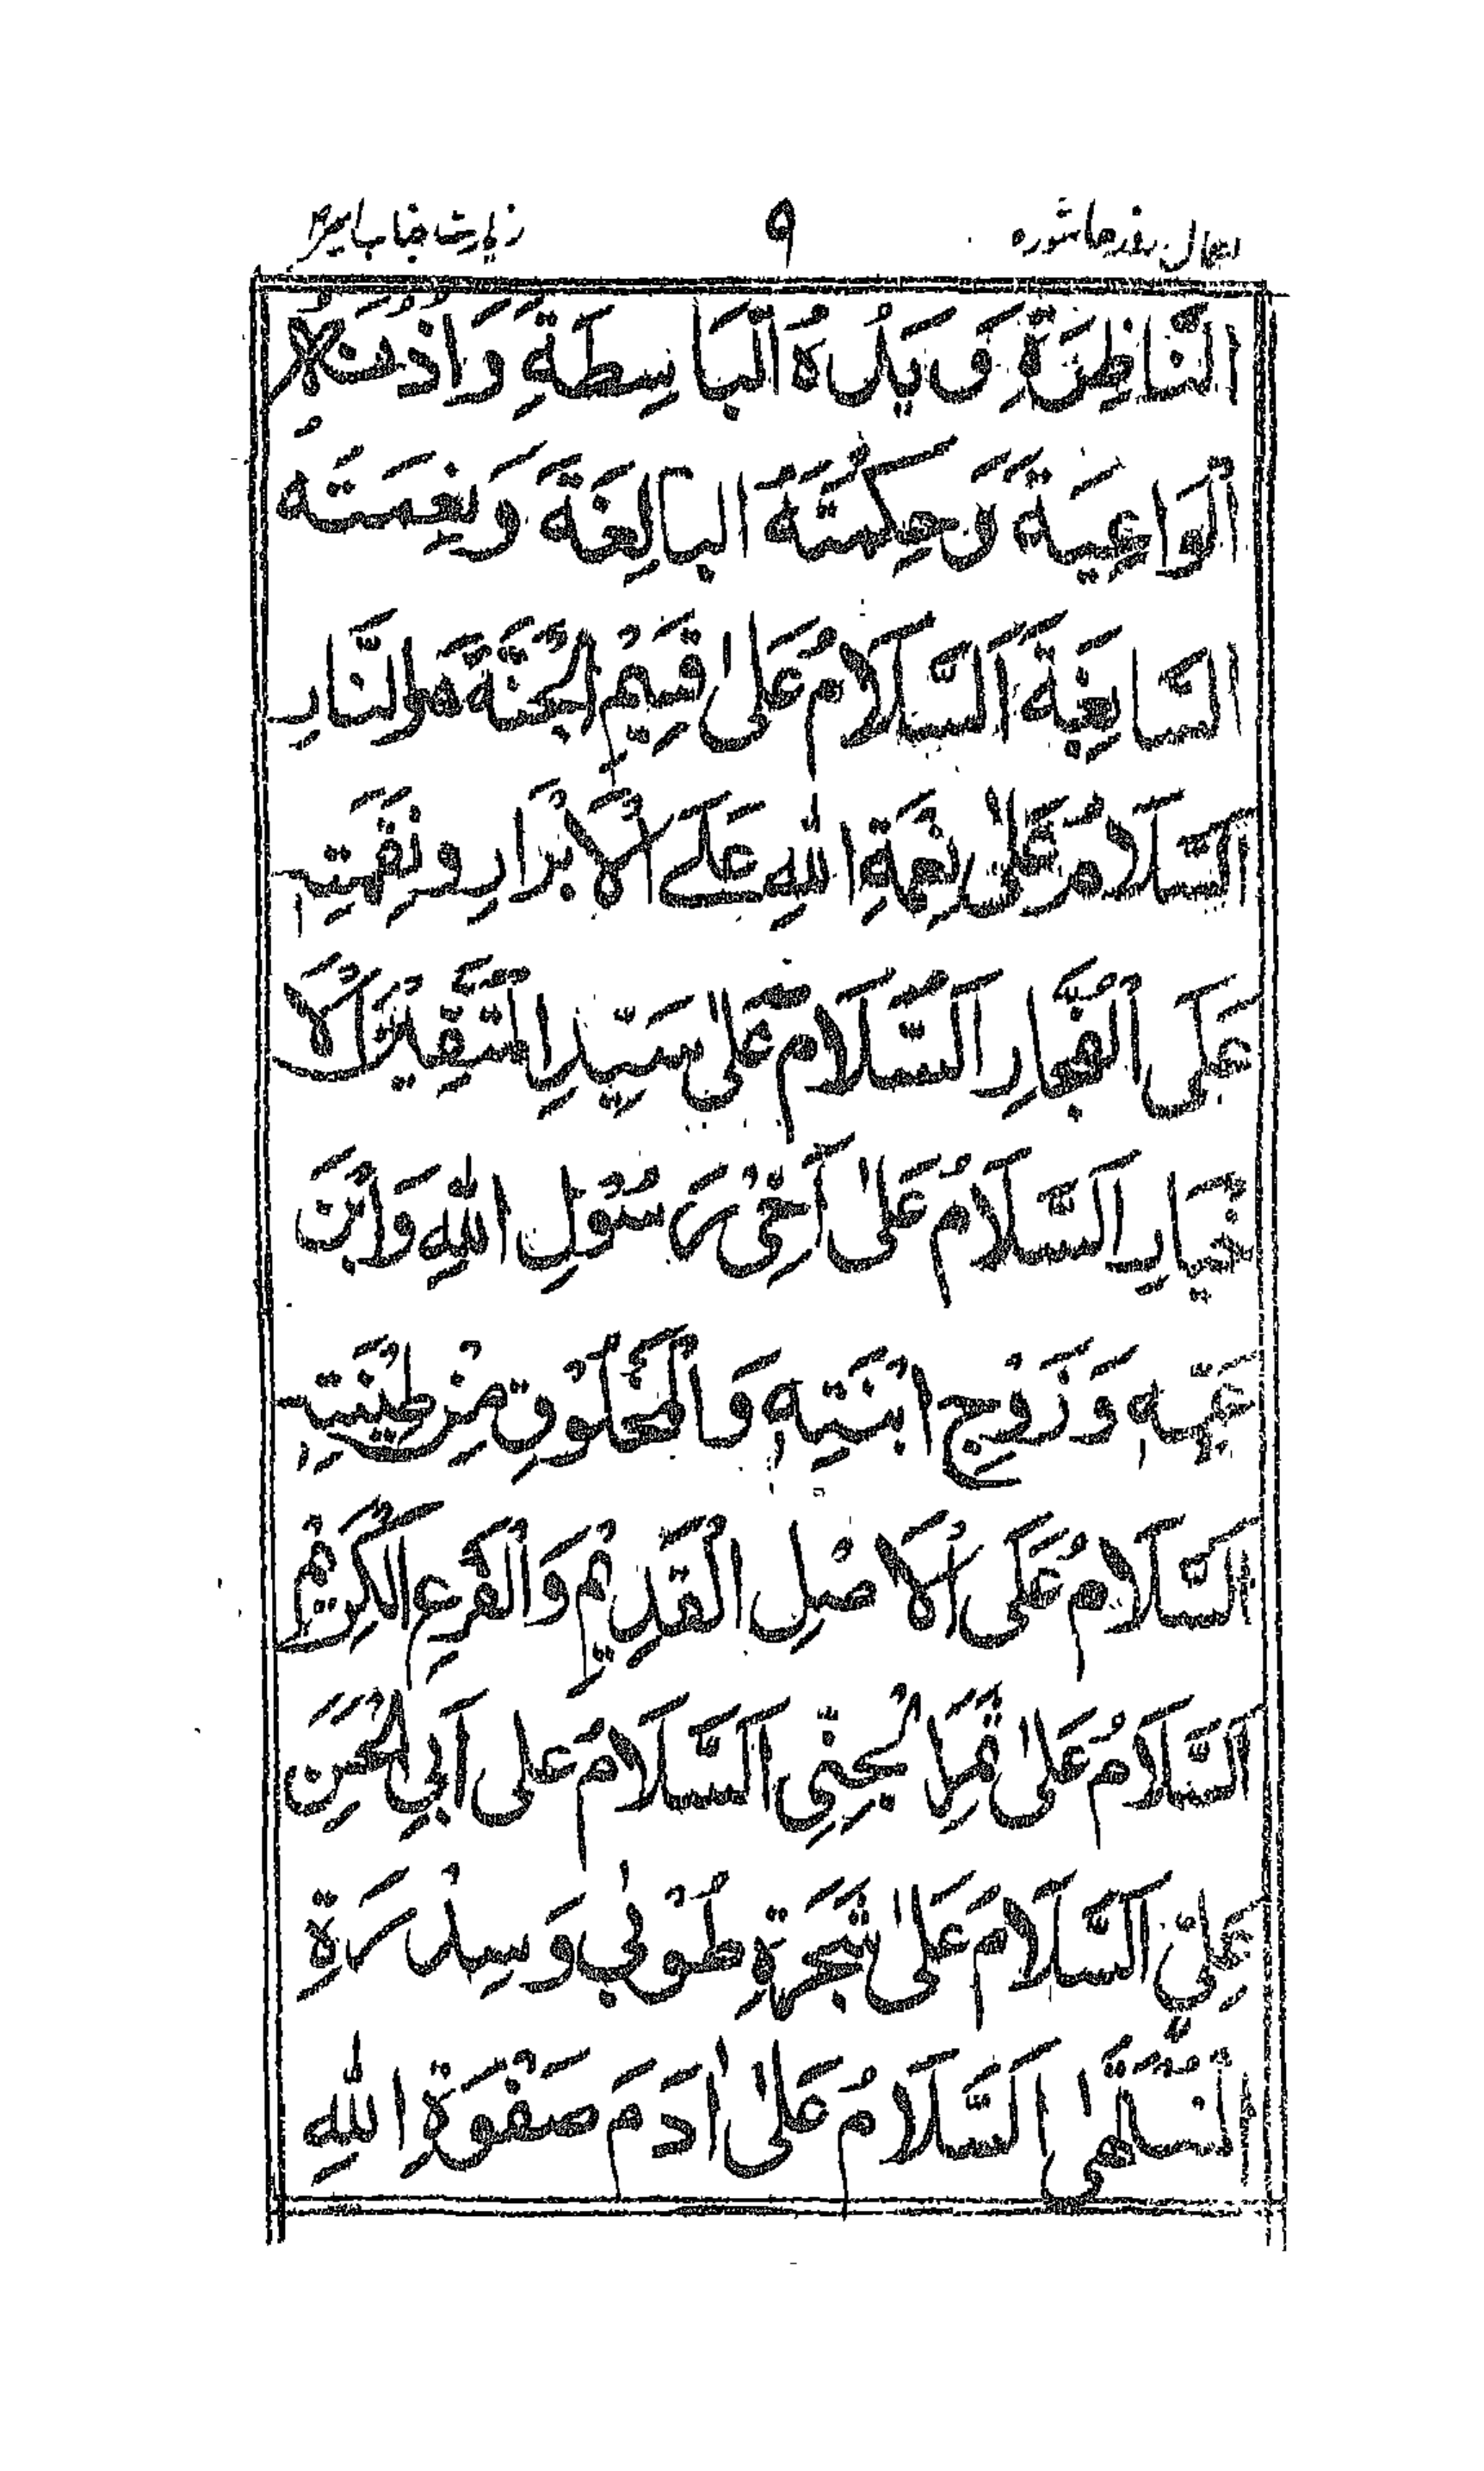 اعمال روز عاشوره ۹ زیارت جناب امیرؑ
النَّاظِرَةِ وَيَدُهُ الْبَاسِطَةِ وَاُذُنُهُ
الْوَاعِيَةَ وَحِكْمَتَهُ البَالِغَةَ وَنِعْمَتَهُ
السَّابِغَةَ اَلسَّلَامُ عَلىٰ قَسِيْمُ الْجَنَّةَ وَالنَّارِ
اَلسَّلَامُ عَلىٰ نِعْمَةِ اللهِ عَلَے الْاَبْرَارِ و نِقْمَتِهٖ
عَلَى الْفُجَّارِ اَلسَّلَامُ عَلىٰ سَيِّدِ الْمُتَّقِيْنَ الْاَ
خْيَارِ اَلسَّلَامُ عَلىٰ اَخِيْ رَسُوْلِ اللهِ وَابْنَ
عَمِّهٖ وَزَوْجِ ابْنَتِهٖ وَالْمَخْلُوْقِ مِنْ طِيْنَتِهٖ
اَلسَّلَامُ عَلَى الْاَصْلِ الْقَدِيْمِ وَالْفَرْعِ الْكَرِيْمِ
اَلسَّلَامُ عَلىٰ ثَمَرِ الْجَنِّي اَلسَّلَامُ على اَبِي الْحَسَنِ
عَلِيٍّ اَلسَّلَامُ عَلىٰ شَجَرَةِ طُوْبىٰ وَسِدْرَةِ
الْمُنْتَهىٰ اَلسَّلَامُ عَلىٰ اٰدَمَ صَفْوَةِ اللهِ